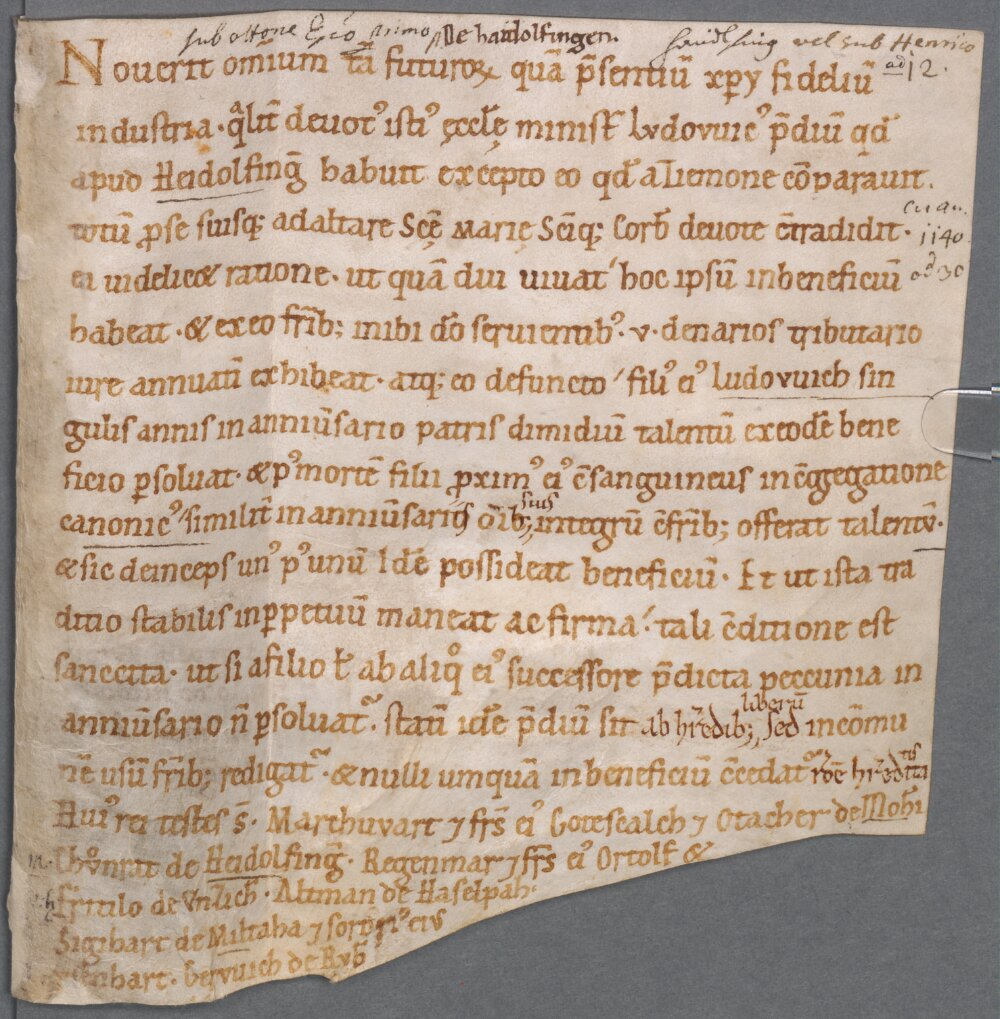 sub ottone Ep̄o primo De haidolfingen. haidlfing vel sub Henrico
Nouerit omīum tā futuroꝝ quā p̄sentiū xp̄y fideliū ad 12.
industria· qͣlit̄ deuotꝰ istiꝰ ęccłę minist̄ Lvdovuicꝰ p̄diū qđ
apud Heidolfinḡ habuit excepto eo qđ a Liemone cōparauit.
totū ꝓ se suisq; ad altare Scę̄ Marię Sc̄iq; Corb̄ deuote c̄tradidit·
1140
ea uidelic& ratione· ut quā diu uiuat / hoc ipsū in beneficiū ad 30
habeat· & ex eo fr̄ib; inibi dō seruientibꝰ· v· denarios tributario
iure annuati exhibeat· atq; eo defuncto / filiꝰ eiꝰ ludovuich sin
gulis annis in anniūsario patris dimidiū talentū ex eodē bene
ficio ꝑsoluat· & pꝰ mortē filii ꝓximꝰ eiꝰ c̄sanguineus in c̄ḡgegatione
suis
canonicꝰ / similit̄ in anniūsariis oīb; integrū c̄fr̄ib; offerat talentū·
& sic deinceps unꝰ pꝰ unū Idē possideat beneficiū· Et ut ista tra
ditio stabilis in ꝑpetuū maneat ac firma / tali c̄ditione est
sanccita· ut si a filio ł ab aliqͦ eiꝰ successore p̄dicta peccunia in
liberū
anniūsario n̄ ꝑsoluat᷑· statī idē p̄diū sit ab hr̄edib; sed in cōmu
tis
nē usū fr̄ib; redigat᷑· & nulli umquā in beneficiū c̄cedat᷑ hr̄edita
Huiꝰ rei testes s̄· Marchuvart ⁊ fr̄s eiꝰ Gotescalch ⁊ Otacher de Mōhi
Chͦvnrat de Heidolfinḡ· Regenmar ⁊ fr̄s eiꝰ Ortolf &
fritilo de Vnzich· Altman de Haselpah·
Sigihart de Miltaha ⁊ sororiꝰ eiꝰ
Gervuich de Rvͦb